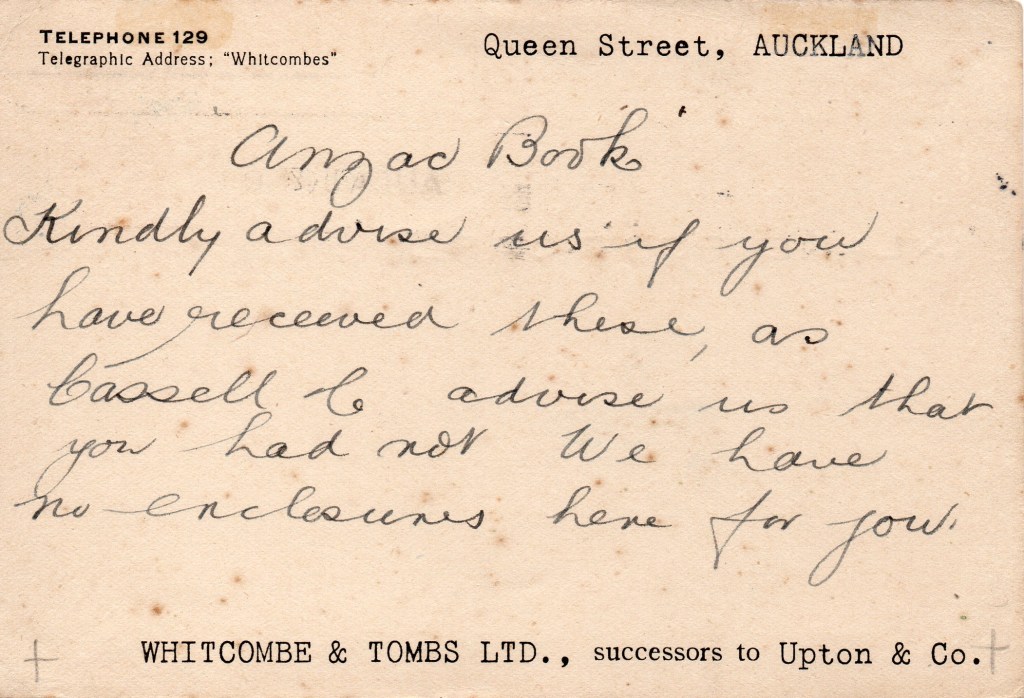 TELEPHONE 129
Telegraphic Address; "Whitcombes"
Queen Street, AUCKLAND
"Anzac Book"
Kindly advise us if you
have received these, as
Cassell & Co advise us that
you had not We have
no enclosures here for you.
WHITCOMBE & TOMBS LTD., successors to Upton & Co.